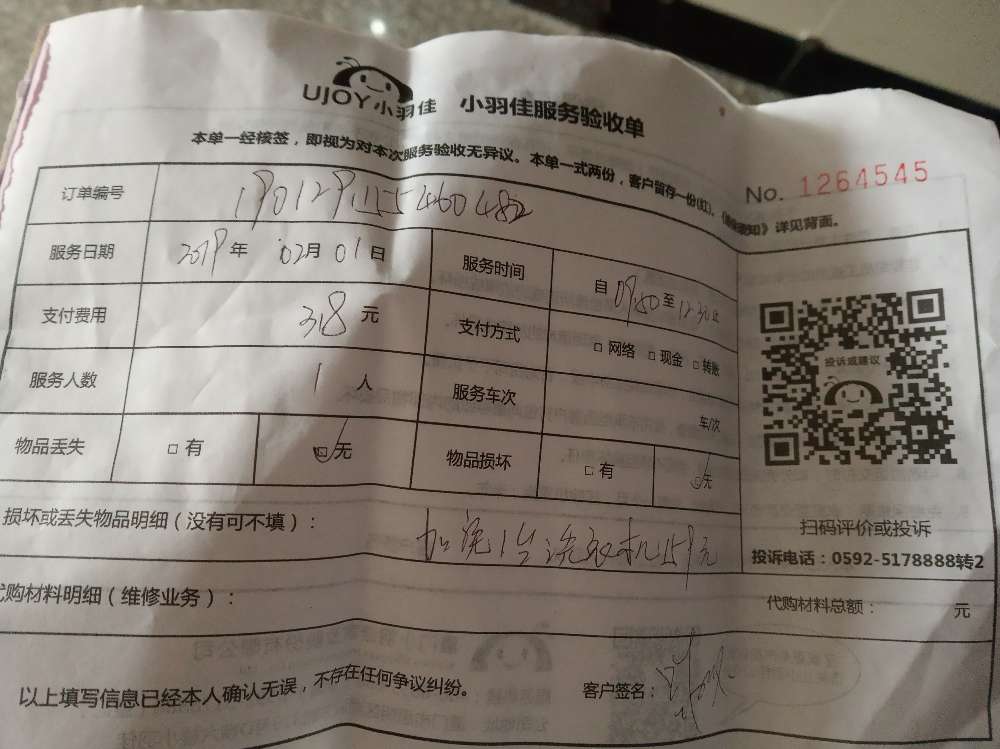 UJOY小羽佳 小羽佳服务验收单
本单一经核签，即视为对本次服务验收无异议。本单一式两份，客户留存一份(红)。《 》详见背面。
No. 1264545
订单编号 190129155460482
服务日期 2019年 02月 01日 服务时间 自 09:50 至 12:30止
支付费用 318 元 支付方式 □ 网络 □ 现金 □ 转账
服务人数 1 人 服务车次 车/次
物品丢失 □ 有 □ 无 物品损坏 □ 有 □ 无
投诉或建议
损坏或丢失物品明细（没有可不填）： 加洗1台洗衣机159元
扫码评价或投诉
投诉电话：0592-5178888转2
代购材料明细（维修业务）： 代购材料总额： 元
以上填写信息已经本人确认无误，不存在任何争议纠纷。 客户签名：